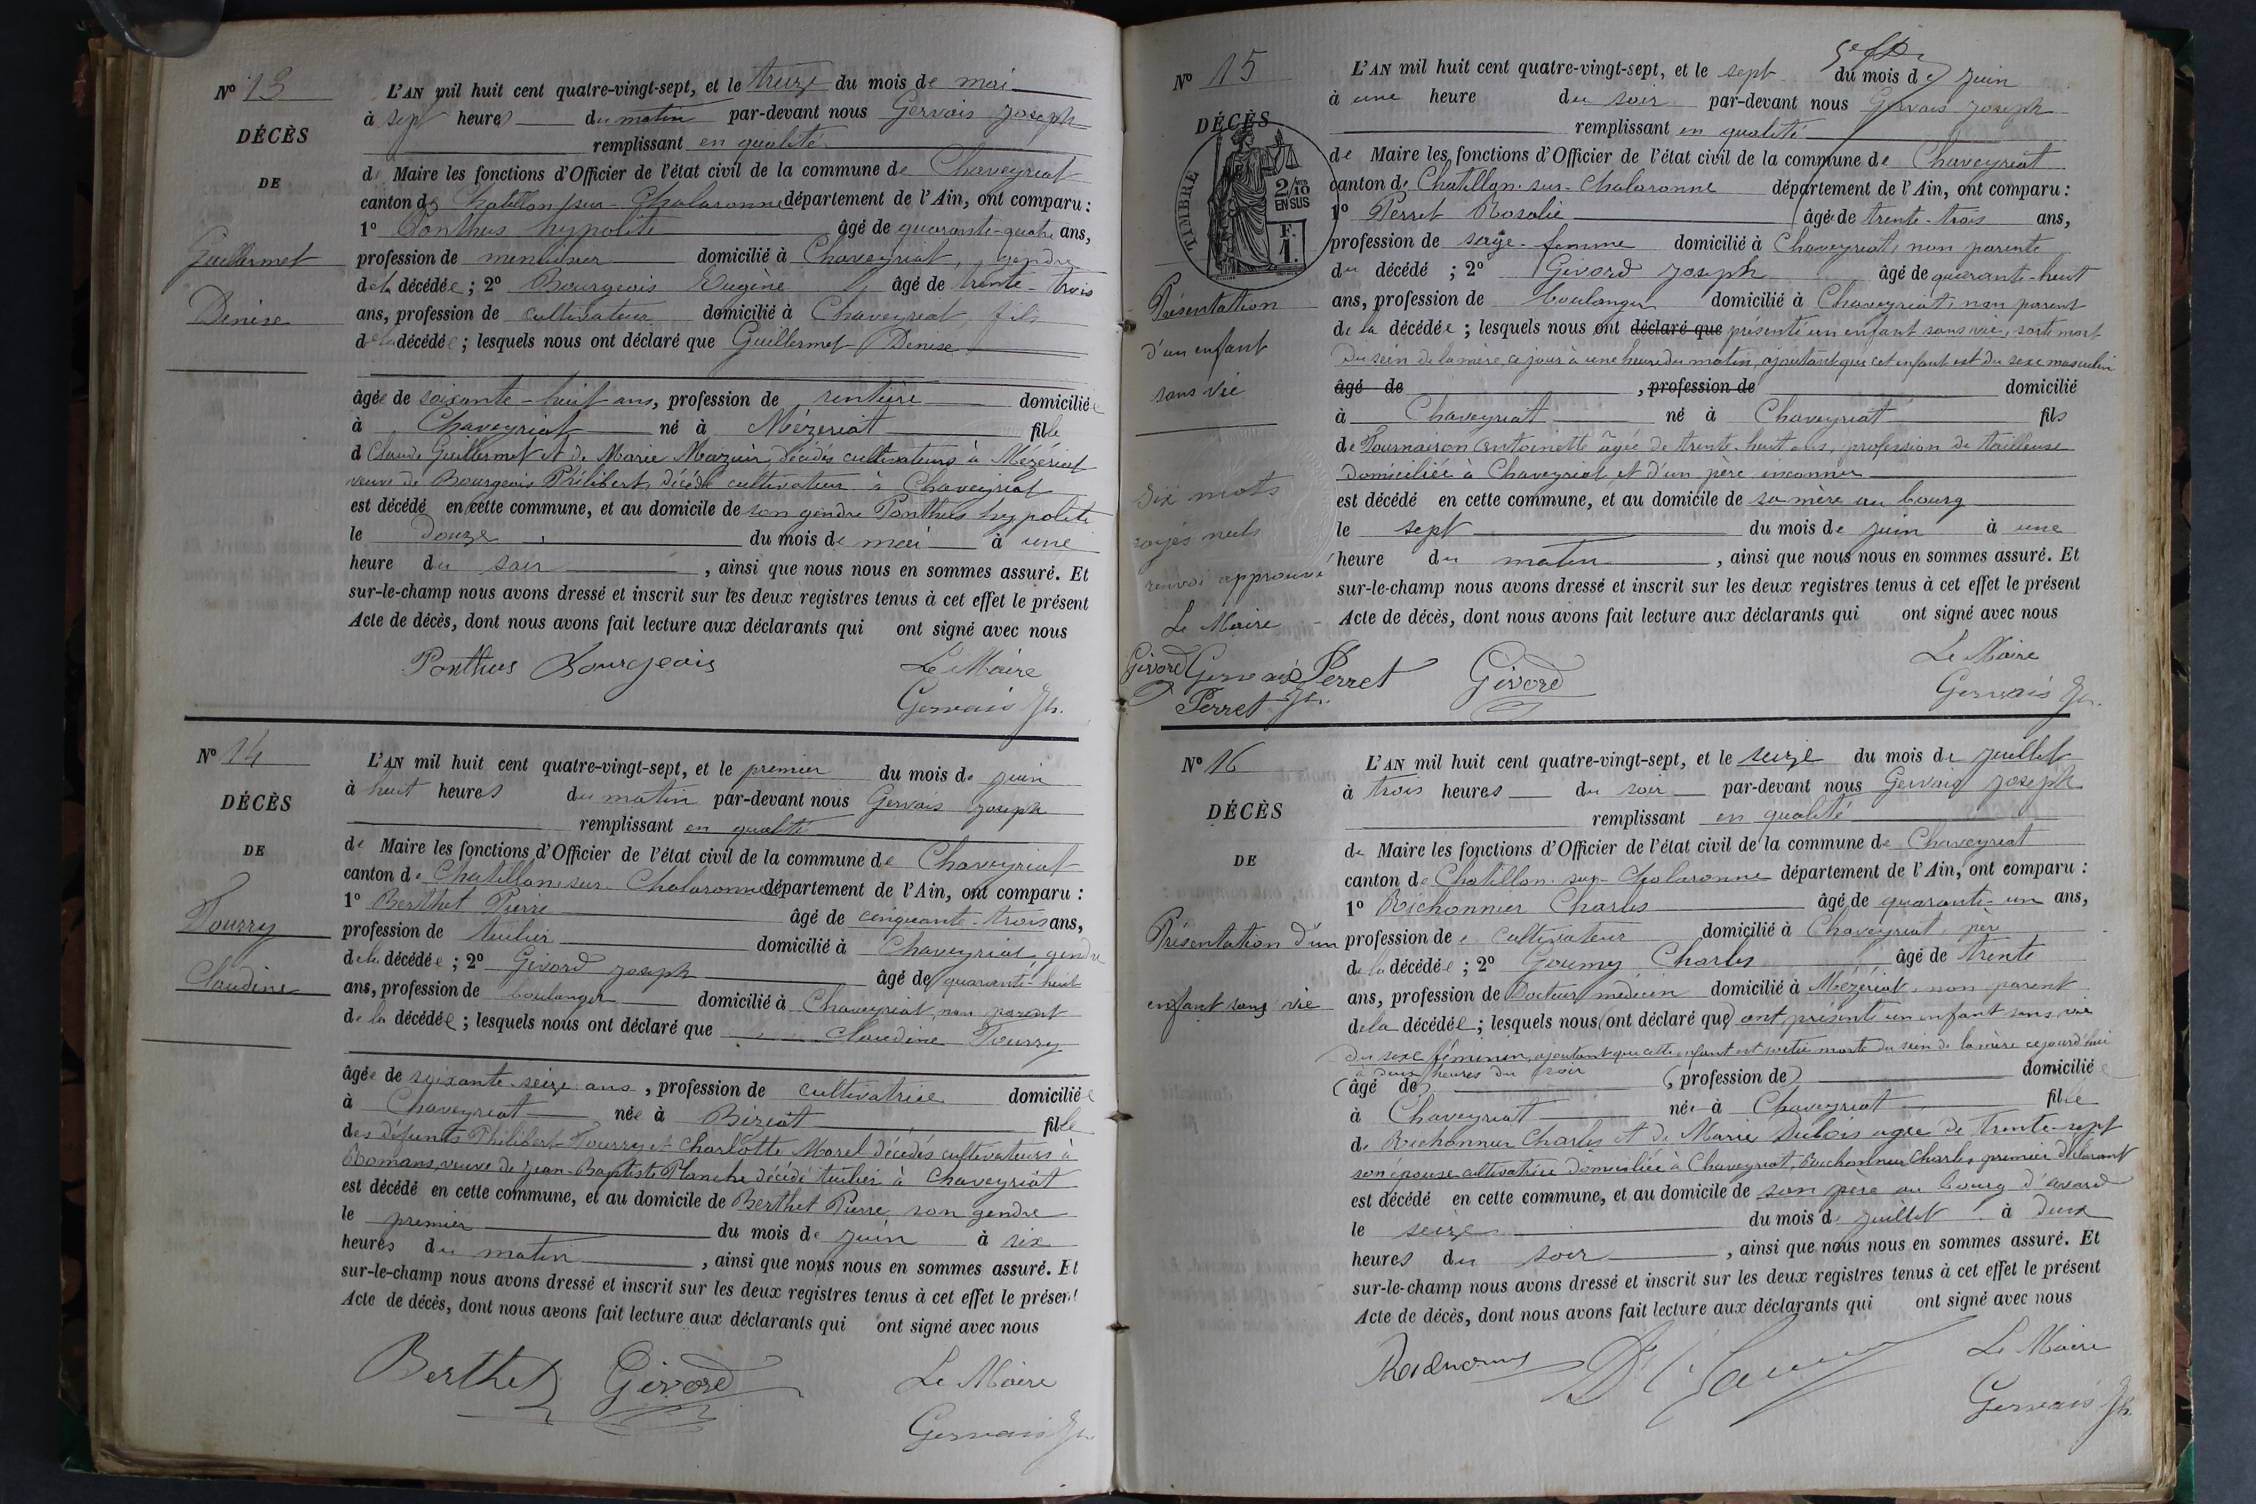 No 13
DÉCÈS
DE
Guillermet
Denise
L'AN mil huit cent quatre-vingt-sept, et le treize du mois de mai
à sept heures du matin par-devant nous Gervais Joseph
remplissant en qualité
de Maire les fonctions d'Officier de l'état civil de la commune de Chaveyriat
canton de Chatillon sur Chalaronne département de l'Ain, ont comparu :
1o Ponthus hypolite âgé de quarante-quatre ans,
profession de menuisier domicilié à Chaveyriat, gendre
de la décédée ; 2o Bourgeois Eugène âgé de trente-trois
ans, profession de cultivateur domicilié à Chaveyriat, fils
de la décédée ; lesquels nous ont déclaré que Guillermet Denise
âgée de soixante-huit ans, profession de rentière domiciliée
à Chaveyriat né à Mézériat fille
d Claude Guillermet et de Marie Mazuir, décédés cultivateurs à Mézériat
veuve de Bourgeois Philibert, décédé cultivateur à Chaveyriat
est décédé en cette commune, et au domicile de son gendre Ponthus hypolite
le douze du mois de mai à une
heure du soir, ainsi que nous nous en sommes assuré. Et
sur-le-champ nous avons dressé et inscrit sur les deux registres tenus à cet effet le présent
Acte de décès, dont nous avons fait lecture aux déclarants qui ont signé avec nous
Ponthus Bourgeois Le Maire
Gervais Jh.
No 14
DÉCÈS
DE
Tourry
Claudine
L'AN mil huit cent quatre-vingt-sept, et le premier du mois de juin
à huit heures du matin par-devant nous Gervais Joseph
remplissant en qualité
de Maire les fonctions d'Officier de l'état civil de la commune de Chaveyriat
canton de Chatillon sur Chalaronne département de l'Ain, ont comparu :
1o Berthet Pierre âgé de cinquante-trois ans,
profession de tuilier domicilié à Chaveyriat gendre
de la décédée ; 2o Givord Joseph âgé de quarante-huit
ans, profession de boulanger domicilié à Chaveyriat, non parent
de la décédée ; lesquels nous ont déclaré que Claudine Tourry
âgée de soixante-seize ans, profession de cultivatrice domiciliée
à Chaveyriat née à Biziat fille
des défunts Philibert Tourry et Charlotte Morel décédés cultivateurs à
Romans, veuve de Jean-Baptiste Planche décédé tuilier à Chaveyriat
est décédé en cette commune, et au domicile de Berthet Pierre son gendre
le premier du mois de juin à six
heures du matin, ainsi que nous nous en sommes assuré. Et
sur-le-champ nous avons dressé et inscrit sur les deux registres tenus à cet effet le présent
Acte de décès, dont nous avons fait lecture aux déclarants qui ont signé avec nous
Berthet Givord Le Maire
Gervais Jh
No 15
DÉCÈS
TIMBRE
2/10 EN SUS
F. 1.
Présentation
d'un enfant
sans vie
Six mots
rayés nuls
renvoi approuvé
Le Maire
Givord Gervais
Perret Jh.
L'AN mil huit cent quatre-vingt-sept, et le sept du mois de juin
à une heure du soir par-devant nous Gervais Joseph
remplissant en qualité
de Maire les fonctions d'Officier de l'état civil de la commune de Chaveyriat
canton de Chatillon-sur-Chalaronne département de l'Ain, ont comparu :
1o Perret Rosalie âgé de trente-trois ans,
profession de sage-femme domicilié à Chaveyriat, non parente
du décédé ; 2o Givord Joseph âgé de quarante-huit
ans, profession de boulanger domicilié à Chaveyriat, non parent
de la décédée ; lesquels nous ont déclaré que présenté un enfant sans vie, sorti mort
du sein de la mère, ce jour à une heure du matin, ajoutant que cet enfant est du sexe masculin
âgé de , profession de domicilié
à Chaveyriat né à Chaveyriat fils
de Tournairon Antoinette âgée de trente-huit ans, profession de tailleuse
domiciliée à Chaveyriat, et d'un père inconnu
est décédé en cette commune, et au domicile de sa mère au bourg
le sept du mois de juin à une
heure du matin, ainsi que nous nous en sommes assuré. Et
sur-le-champ nous avons dressé et inscrit sur les deux registres tenus à cet effet le présent
Acte de décès, dont nous avons fait lecture aux déclarants qui ont signé avec nous
Perret Givord Le Maire
Gervais Jh.
No 16
DÉCÈS
DE
Présentation d'un
enfant sans vie
L'AN mil huit cent quatre-vingt-sept, et le seize du mois de juillet
à trois heures du soir par-devant nous Gervais Joseph
remplissant en qualité
de Maire les fonctions d'Officier de l'état civil de la commune de Chaveyriat
canton de Chatillon-sur-Chalaronne département de l'Ain, ont comparu :
1o Richonnier Charles âgé de quarante-un ans,
profession de cultivateur domicilié à Chaveyriat, père
de la décédée ; 2o Goumy Charles âgé de trente
ans, profession de Docteur médecin domicilié à Mézériat non parent
de la décédée ; lesquels nous (ont déclaré que) ont présenté un enfant sans vie
du sexe féminin, ajoutant que cette enfant est sortie morte du sein de la mère cejourd'hui
à deux heures du soir
(âgé de) (, profession de) domiciliée
à Chaveyriat née à Chaveyriat fille
de Richonnier Charles et de Marie Dubois agée de trente-sept
son épouse cultivatrice domiciliée à Chaveyriat, Richonnier Charles, premier déclarant
est décédé en cette commune, et au domicile de son père au bourg d'avard
le seize du mois de juillet à deux
heures du soir, ainsi que nous nous en sommes assuré. Et
sur-le-champ nous avons dressé et inscrit sur les deux registres tenus à cet effet le présent
Acte de décès, dont nous avons fait lecture aux déclarants qui ont signé avec nous
Le Maire
Gervais Jh.